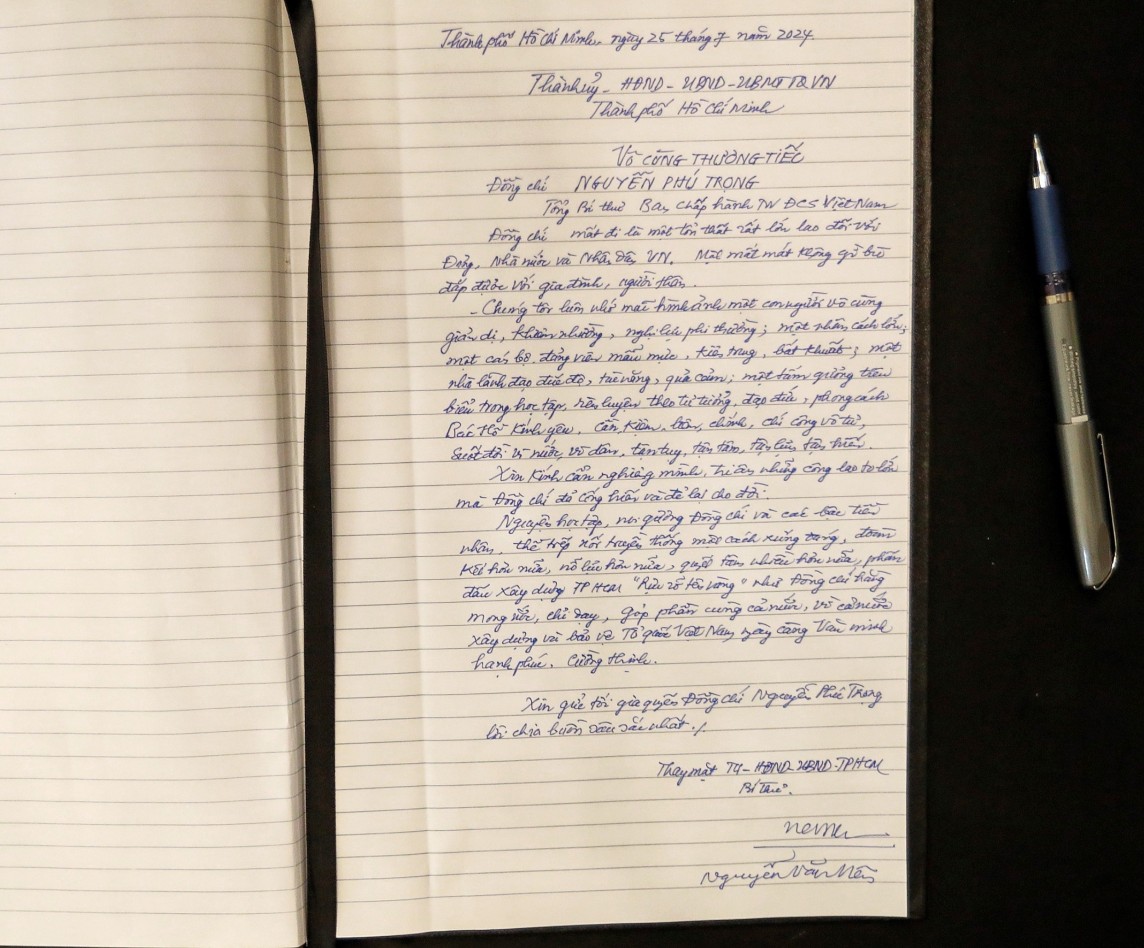 Thành phố Hồ Chí Minh, ngày 25 tháng 7 năm 2024.
Thành ủy - HĐND - UBND - UBMTTQVN
Thành phố Hồ Chí Minh
Vô cùng THƯƠNG TIẾC
Đồng chí NGUYỄN PHÚ TRỌNG
Tổng Bí thư Ban Chấp hành TW ĐCS Việt Nam
Đồng chí mất đi là một tổn thất rất lớn lao đối với
Đảng, Nhà nước và Nhân dân VN. Một mất mát không gì bù
đắp được với gia đình, người thân.
- Chúng tôi luôn nhớ mãi hình ảnh một con người vô cùng
giản dị, khiêm nhường, nghị lực phi thường; một nhân cách lớn;
một cán bộ, đảng viên mẫu mực, kiên trung, bất khuất; một
nhà lãnh đạo đức độ, tài năng, quả cảm; một tấm gương tiêu
biểu trong học tập, rèn luyện theo tư tưởng, đạo đức, phong cách
Bác Hồ kính yêu, cần, kiệm, liêm, chính, chí công vô tư,
suốt đời vì nước, vì dân, tận tụy, tận tâm, tận lực, tận hiến.
Xin kính cẩn nghiêng mình, tri ân những công lao to lớn
mà Đồng chí đã cống hiến và để lại cho đời.
Nguyện học tập, noi gương Đồng chí và các bậc tiền
nhân, thế tiếp nối truyền thống một cách xứng đáng, đoàn
kết hơn nữa, nỗ lực hơn nữa, quyết tâm nhiều hơn nữa, phấn
đấu xây dựng TPHCM "Rực rỡ tên vàng" như Đồng chí hằng
mong ước, chỉ dạy, góp phần cùng cả nước, vì cả nước
xây dựng và bảo vệ Tổ quốc Việt Nam ngày càng Văn minh
hạnh phúc, cường thịnh.
Xin gửi tới gia quyến Đồng chí Nguyễn Phú Trọng
lời chia buồn sâu sắc nhất./.
Thay mặt TU - HĐND - UBND - TPHCM
Bí thư.
Nguyễn Văn Nên